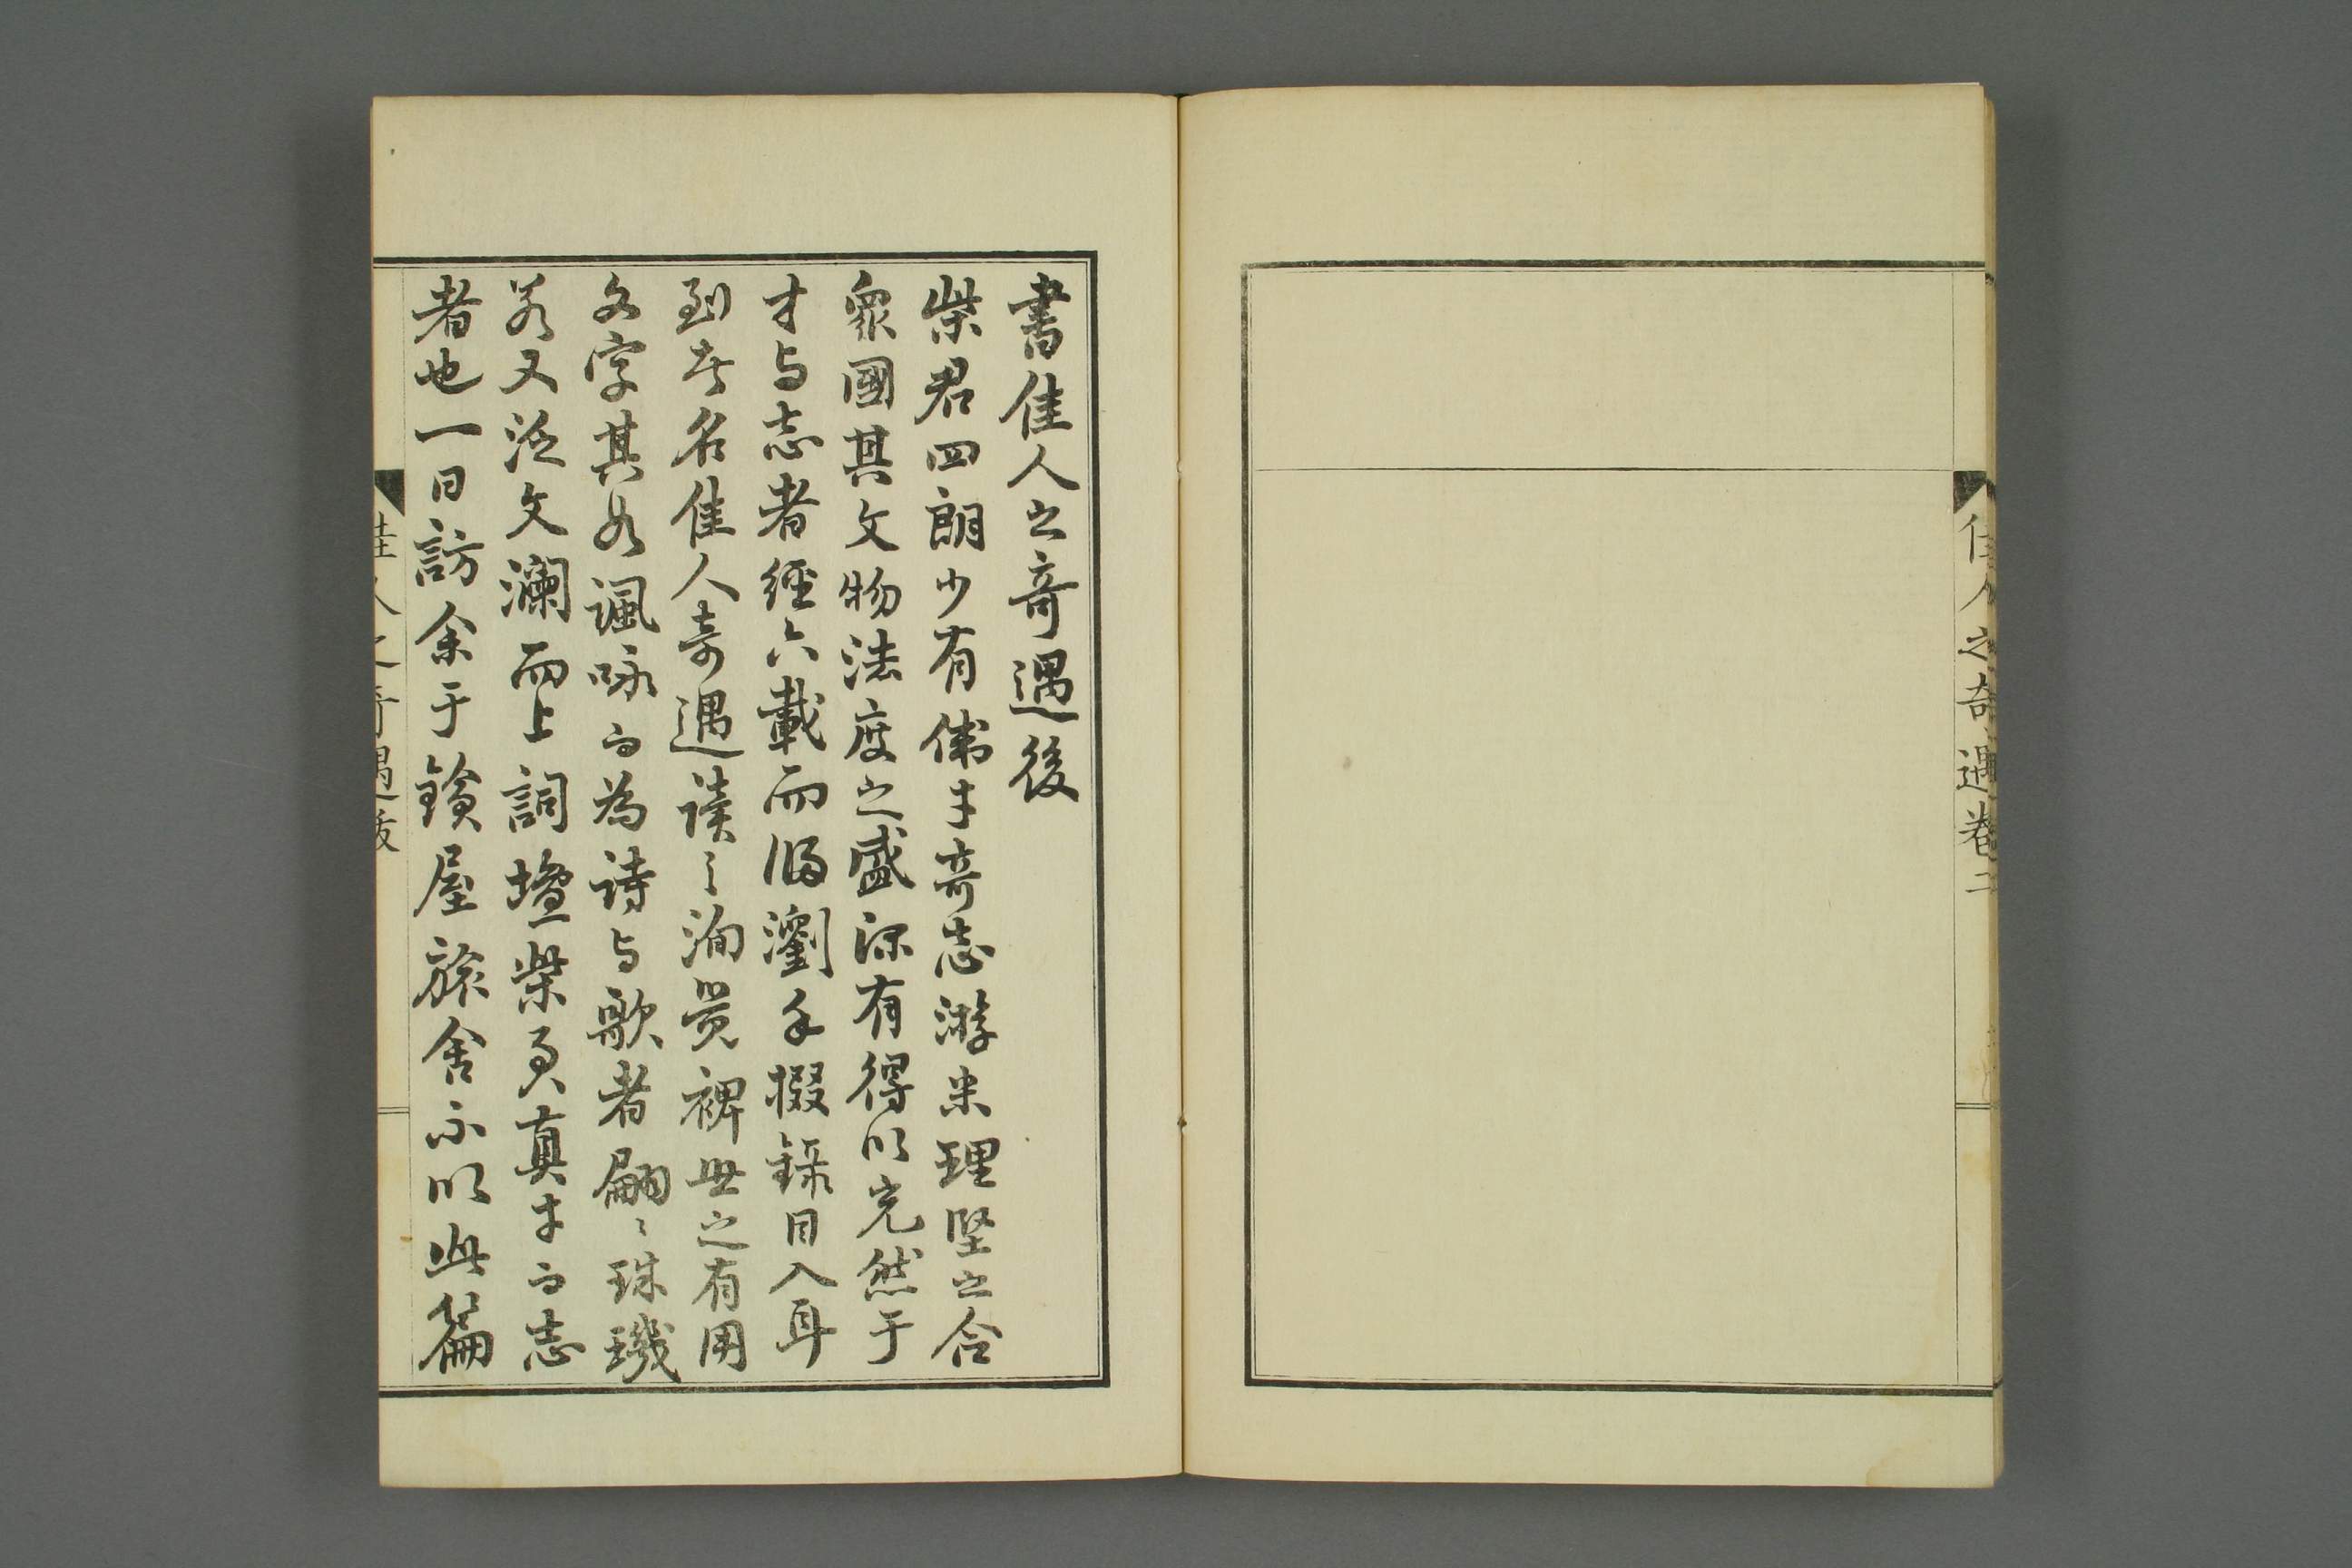 佳人之奇遇卷二
書佳人之奇遇後
柴君四朗少有俤才奇志游米理堅之合
衆國其文物法度之盛深有得以充然于
才与志者經六載而歸瀏手掇錄目入耳
到者名佳人奇遇讀之洵是裨世之有用
文字其如諷咏而為詩与歌者翩〻珠璣
若又泛文瀾而上詞壇柴君真才而志
者也一日訪余于鎗屋旅舍示以此篇
佳人之奇遇跋